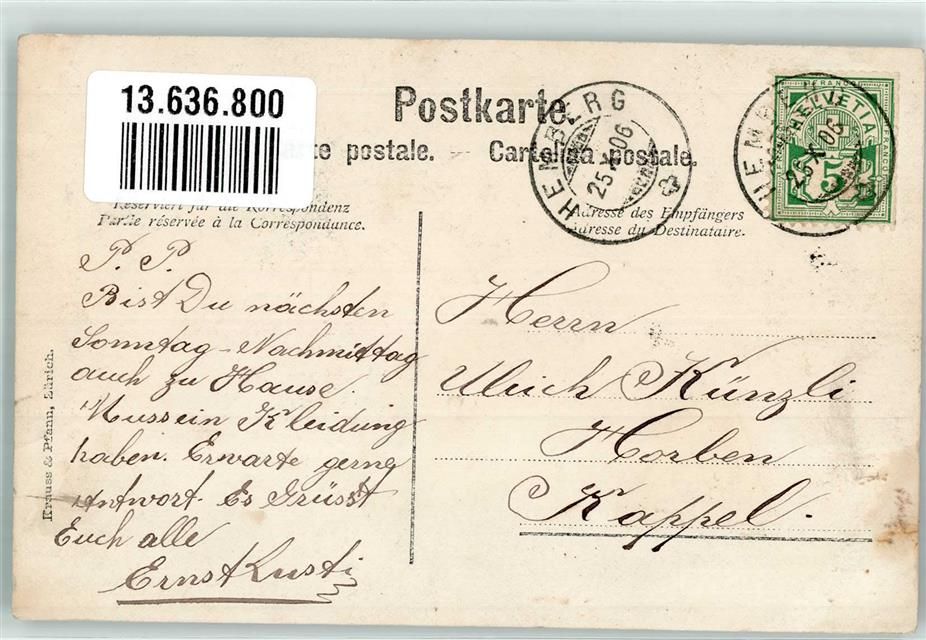 13.636.800
Postkarte.
postale. — Cartolina postale.
HEMBERG
25.X.06
HEMBERG
25.X.06
FRANCO
HELVETIA
5
Reserviert für die Korrespondenz
Partie réservée à la Correspondance.
Adresse des Empfängers
Adresse du Destinataire.
P. P.
Bist Du nächsten
Sonntag-Nachmittag
auch zu Hause.
Muss ein Kleidung
haben. Erwarte gerne
Antwort. Es Grüsst
Euch alle
Ernst Kusti
Herrn
Ulrich Künzli
Horben
Kappel.
Krauss & Pfann, Zürich.